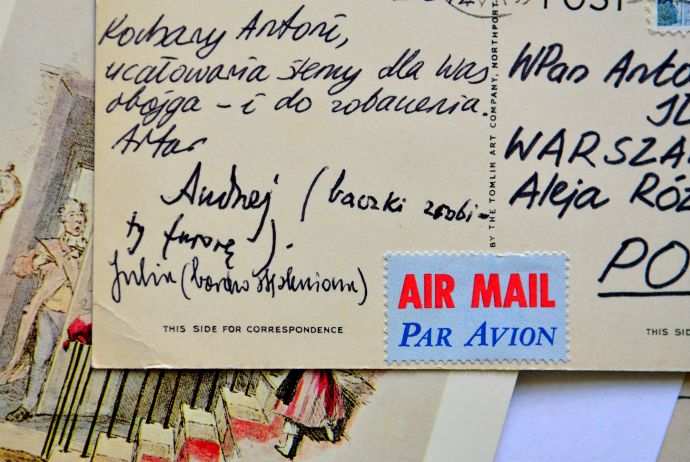 Kochany Antoni,
ucałowania ślemy dla was
obojga - i do zobaczenia.
Artur
Andrzej (baczki zrobi-
ły furorę).
Julia (bardzo stęskniona)
THIS SIDE FOR CORRESPONDENCE
BY THE TOMLIN ART COMPANY, NORTHPORT
POST
WPan Anto
WARSZA
Aleja RÓŻ
PO
AIR MAIL
PAR AVION
THIS SID